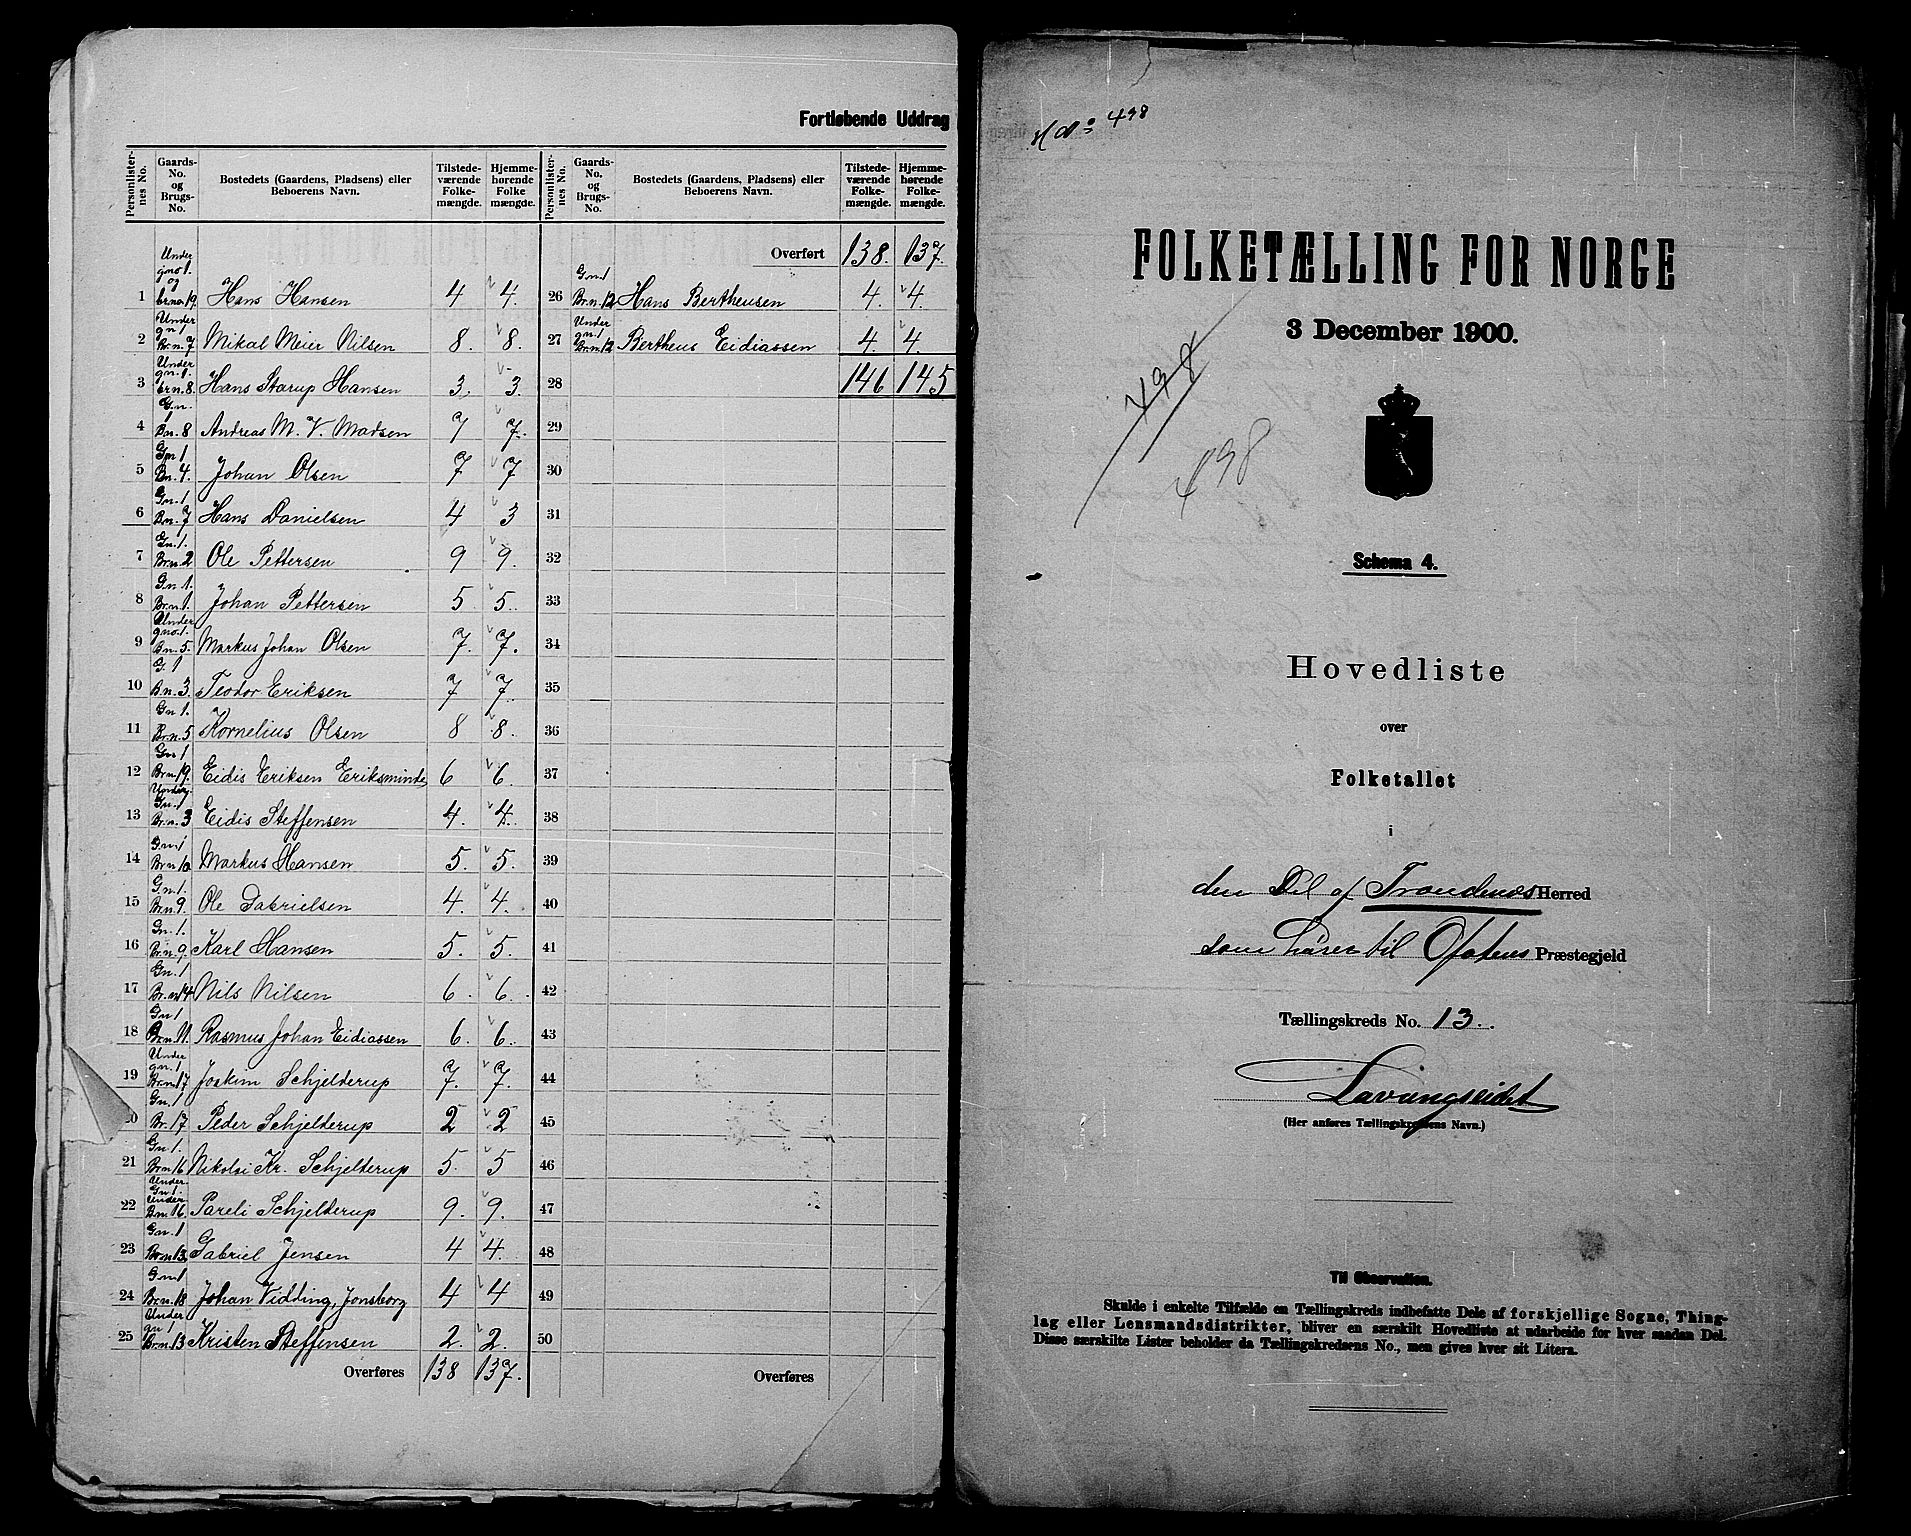 Fortløbende Uddrag
Personlisternes No. | Gaards-No. og Brugs-No. | Bostedets (Gaardens, Pladsens) eller Beboerens Navn. | Tilstedeværende Folkemængde. | Hjemmehørende Folkemængde. | Personlisternes No. | Gaards-No. og Brugs-No. | Bostedets (Gaardens, Pladsens) eller Beboerens Navn. | Tilstedeværende Folkemængde. | Hjemmehørende Folkemængde.
Overført 138. 137.
1 Under gno 1. og brno. 19. Hans Hansen 4 4. 26 G.n.1 Br.n.12 Hans Bertheusen 4. 4.
2 Under gn.1 Br.n.7 Mikal Meier Nilsen 8. 8. 27 Under gn.1 Br.n.12 Bertheus Eidiassen 4. 4.
3 Under gn.1. brn.8. Hans Starup Hansen 3. 3. 28 146 145
4 G.n. 1 Bn.8 Andreas M. V. Madsen 7 7. 29
5 Gn 1 Bn.4. Johan Olsen 7 7 30
6 Gn.1 Bn.7 Hans Danielsen 4 3 31
7 Gn.1. Br.n.2 Ole Pettersen 9 9. 32
8 Gn.1. Br.n.1. Johan Pettersen 5 5. 33
9 Under gno.1. Bn.5. Markus Johan Olsen 7. 7. 34
10 G.1 Bn.3. Teodor Eriksen 7 7. 35
11 Gn 1. Br.n.5 Kornelius Olsen 8 8. 36
12 Gn 1 Br.n.19. Eidis Eriksen Eriksminde 6 6. 37
13 Under Gn.1 Br.n.3 Eidis Steffensen 4. 4. 38
14 Gn.1 Br.n.10 Markus Hansen 5. 5. 39
15 G.n.1. Br.n.9. Ole Gabrielsen 4. 4. 40
16 Gn.1. Br.n.9. Karl Hansen 5. 5. 41
17 Gn.1 Br.n.14 Nils Nilsen 6. 6. 42
18 Gn 1 Br.n.11. Rasmus Johan Eidiassen 6. 6. 43
19 Under gn.1 Br.n.17 Joakim Schjelderup 7. 7. 44
20 Gn.1 Br.17 Peder Schjelderup 2 2 45
21 Gn.1. Br.n.16 Nikolai Kr. Schjelderup 5. 5 46
22 Under Gn.1. Under Bn.16. Pareli Schjelderup 9. 9. 47
23 Gn.1 Br.n.13. Gabriel Jensen 4 4. 48
24 Gn.1 Br.n.18 Johan Vidding, Jonsborg 4 4 49
25 Under gn 1 Br.n.13 Kristen Steffensen 2. 2. 50
Overføres 138 137. Overføres
498
FOLKETÆLLING FOR NORGE
3 December 1900.
498
498
Schema 4.
Hovedliste
over
Folketallet
i
den Del af Trondenæs Herred
som hører til Ofotens Præstegjeld
Tællingskreds No. 13.
Lavangseidet
(Her anføres Tællingskredsens Navn.)
Til Observation.
Skulde i enkelte Tilfælde en Tællingskreds indbefatte Dele af forskjellige Sogne, Thing-
lag eller Lensmandsdistrikter, bliver en særskilt Hovedliste at udarbeide for hver saadan Del.
Disse særskilte Lister beholder da Tællingskredsens No., men gives hver sit Litera.